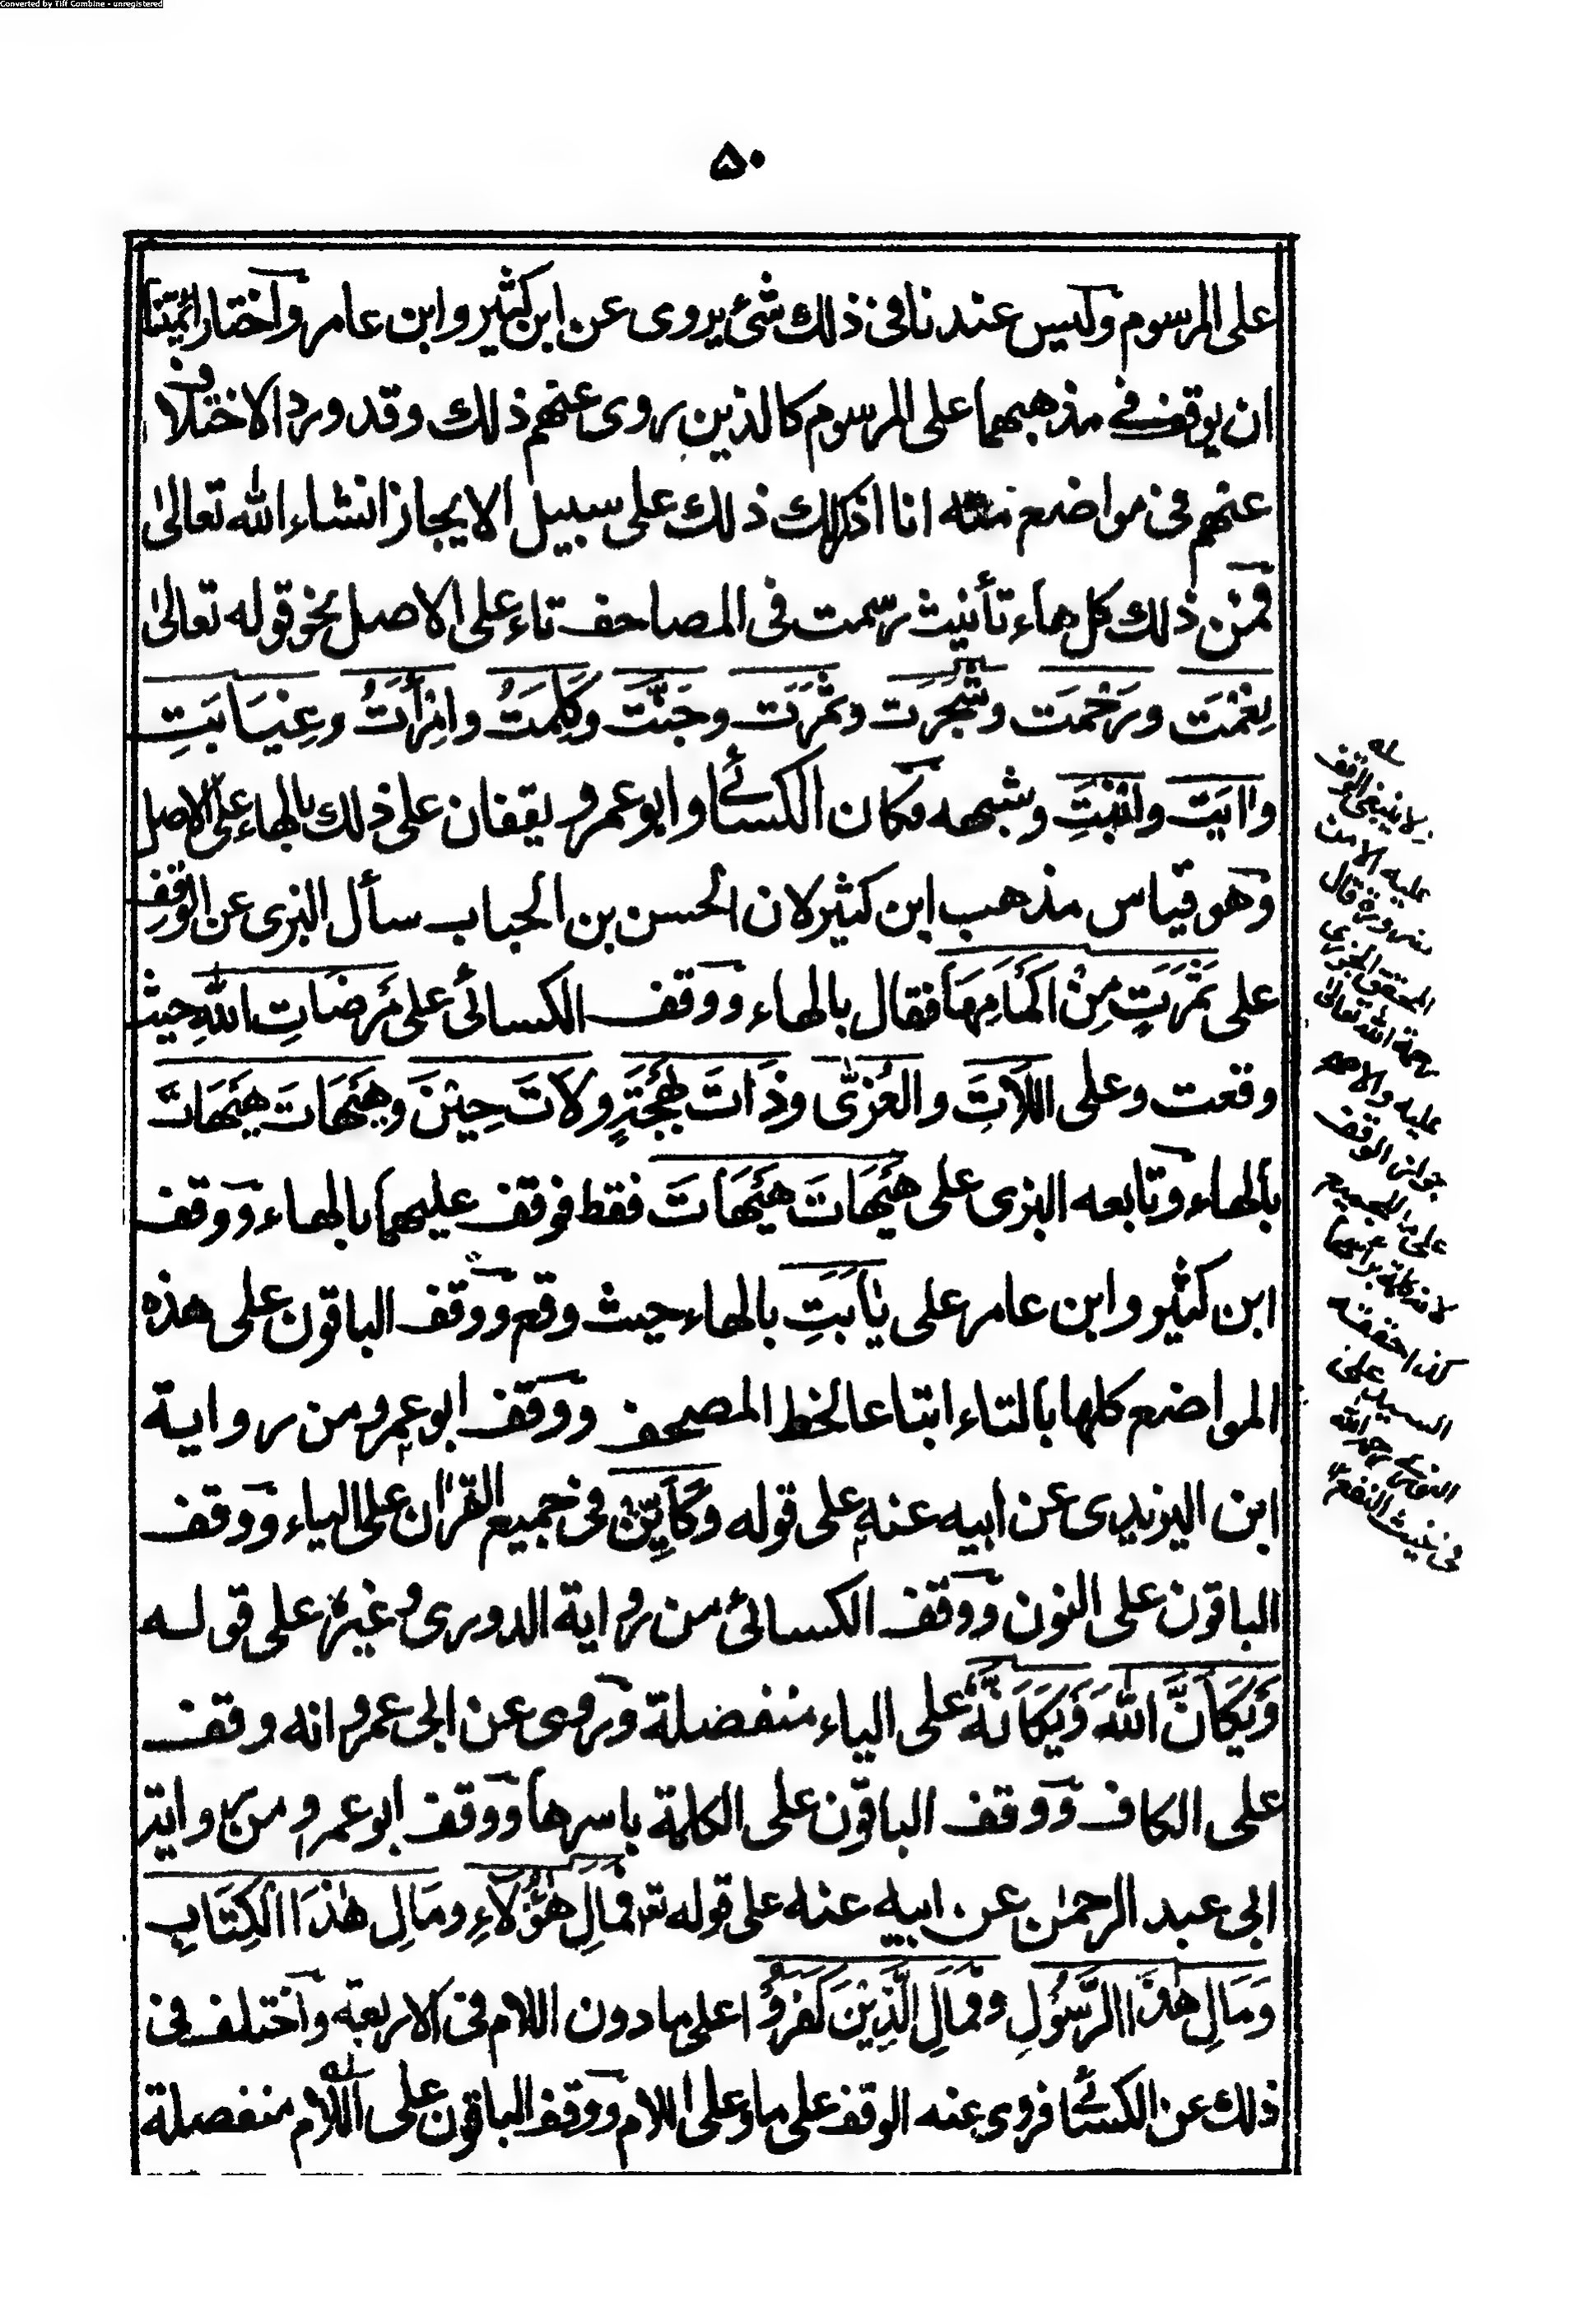 Converted by Tiff Combine - unregistered
۵۰
على المرسوم وليس عندنا فى ذلك شئ يروى عن ابن كثير وابن عامر واختار ائمتنا
ان يوقف فے مذهبهما على المرسوم كالذين يروى عنهم ذلك وقد ورد الاختلاف
عنهم فى مواضع منه انا اذكرلك ذلك على سبيل الايجاز انشاء الله تعالىٰ
فمن ذلك كل هاء تأنيث رسمت فى المصاحف تاء على الاصل نحو قوله تعالىٰ
نِعْمَت ورَحْمَت وشَجَرَت وثَمَرَت وجَنَّت وكَلِمَتُ وامْرَأَتُ وغِيَابَتِ
واٰيَتَ وابْنَتَ وشبهه وكان الكسائے وابو عمرو يقفان على ذلك بالهاء على الاصل
وهو قياس مذهب ابن كثير لان الحسن بن الحباب سأل البزى عن الوقف
على ثَمَرَتٍ مِنْ اَكْمَامِهَا فقال بالهاء ووقف الكسائى على مَرضَاتِ اللّٰهِ حيث
وقعت وعلى اللَّاتَ والعُزّٰى وذَاتَ بَهْجَةٍ ولَاتَ حِيْنَ وهَيْهَاتَ هَيْهَاتَ
بالهاء وتابعه البزى على هَيْهَاتَ هَيْهَاتَ فقط فوقف عليهما بالهاء ووقف
ابن كثير وابن عامر على يٰاَبَتِ بالهاء حيث وقع ووقف الباقون على هذه
المواضع كلها بالتاء اتباعا لخط المصحف ووقف ابو عمرو من رواية
ابن اليزيدى عن ابيه عنه على قوله وكَاَيِّنْ فى جميع القرٰان على الياء ووقف
الباقون على النون ووقف الكسائى من رواية الدورى وغيره على قوله
وَيْكَاَنَّ اللّٰهَ وَيْكَاَنَّهٗ على الياء منفصلة وروى عن ابى عمرو انه وقف
على الكاف ووقف الباقون على الكلمة باسرها ووقف ابو عمرو من رواية
ابى عبد الرحمٰن عن ابيه عنه على قوله تع فمَالِ هٰٓؤُلَاءِ ومَالِ هٰذَا الْكِتَابِ
وَمَالِ هٰذَا الرَّسُوْلِ وفَمَالِ الَّذِيْنَ كَفَرُوْا على ما دون اللام فى الاربعة واختلف فى
ذلك عن الكسائے فروى عنه الوقف على ما وعلى اللام ووقف الباقون على اللام منفصلة
له
لا ينبغى الوقف
عليه الا من
ضرورة قال
المحقق الجزرى
رحمة الله تعالىٰ
عليه والاصح
جواز الوقف
على ما للجميع
لانه كلمة برأسها
كذا حققه
السيد على
النورى رحمه الله
فى غيث النفع